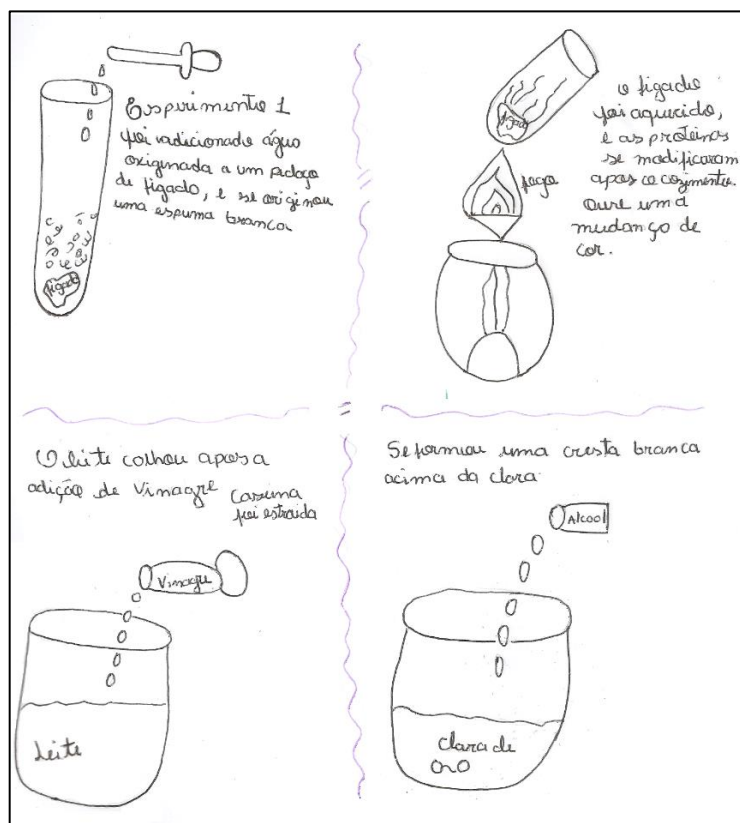 Esperimento 1
foi adicionado água
oxiginada a um pedaço
de figado, e se originou
uma espuma branca
figado
o figado
foi aquecido,
e as proteinas
se modificaram
apos o cozimento.
Ouve uma
mudança de
cor.
figado
fogo
O leite colhou apos a
adição de Vinagre
Caseina
foi estraida
Vinagre
Leite
Se formou uma crosta branca
acima da clara
Alcool
Clara de
ovo